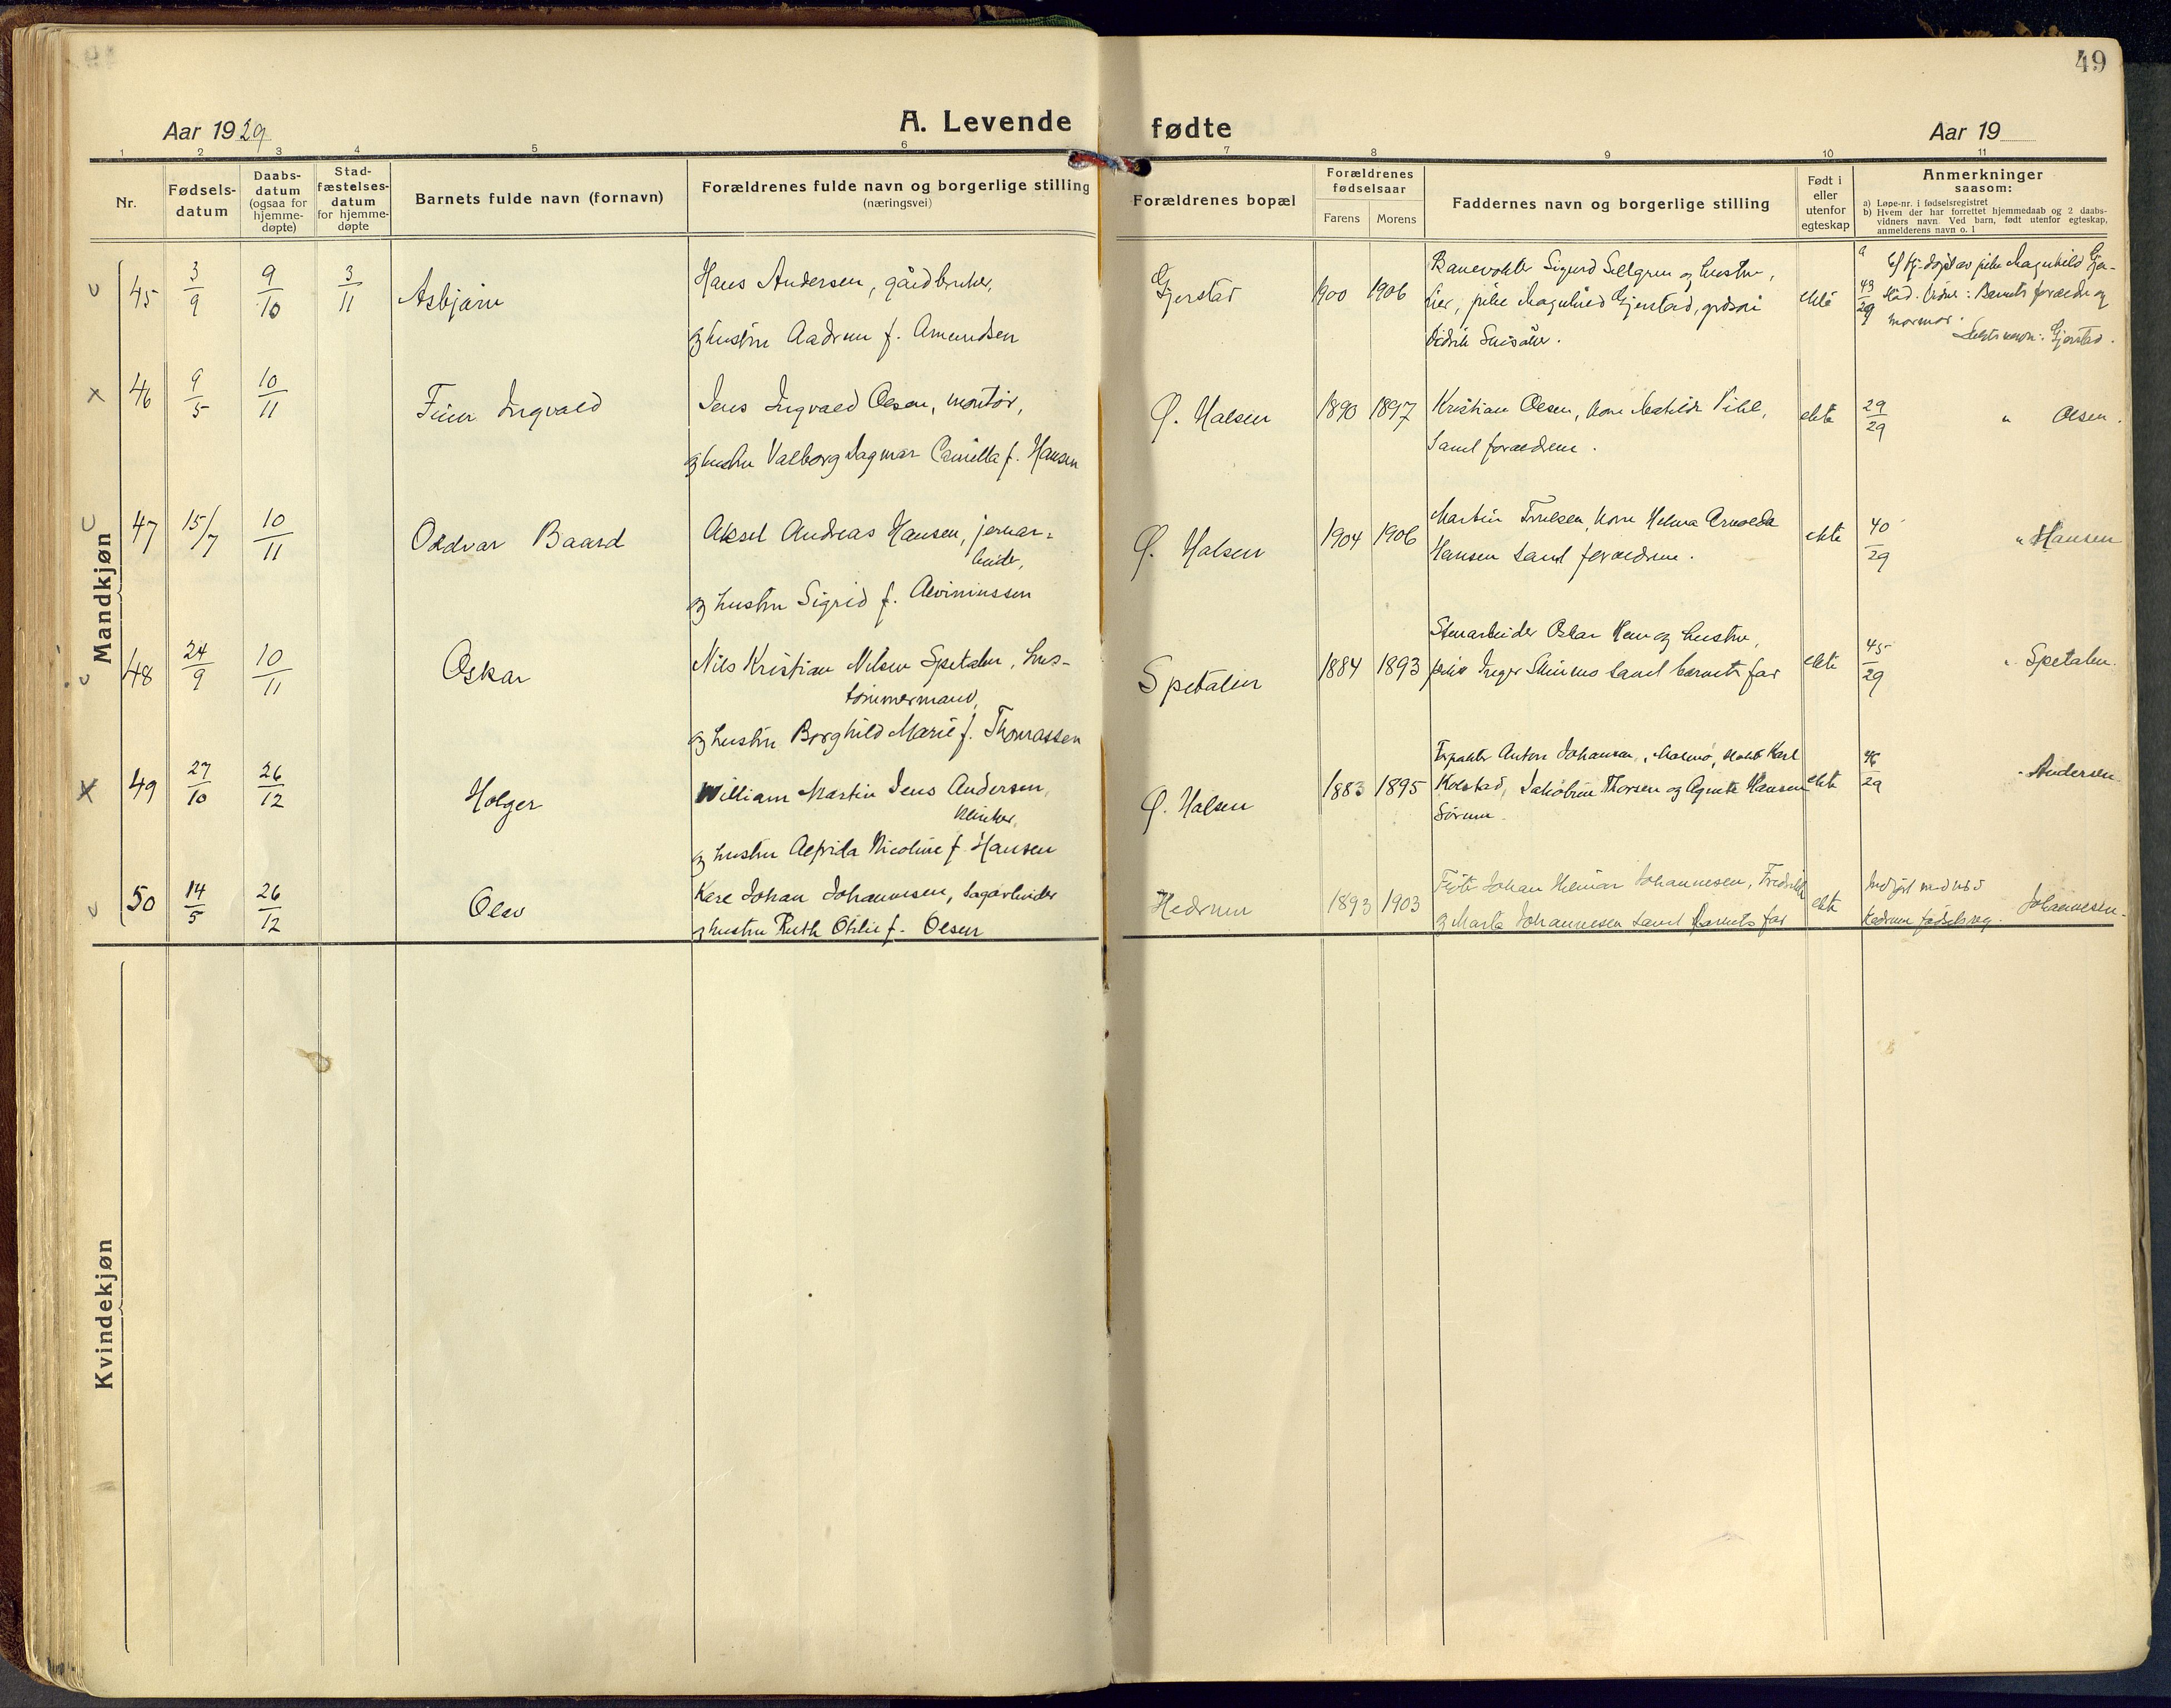 49
Aar 1929
A. Levende fødte
Aar 19
1 2 3 4 5 6 7 8 9 10 11
Nr.
Fødsels-
datum
Daabs-
datum
(ogsaa for
hjemme-
døpte)
Stad-
fæstelses-
datum
for hjemme-
døpte
Barnets fulde navn (fornavn)
Forældrenes fulde navn og borgerlige stilling
(næringsvei)
Forældrenes bopæl
Forældrenes
fødselsaar
Farens Morens
Faddernes navn og borgerlige stilling
Født i
eller
utenfor
egteskap
Anmerkninger
saasom:
a) Løpe-nr. i fødselsregistret
b) Hvem der har forrettet hjemmedaab og 2 daabs-
vidners navn. Ved barn, født utenfor egteskap,
anmelderens navn o. l
Mandkjøn
45 3/9 9/10 3/11 Asbjørn
Hans Andersen, gårdbruker,
og hustru Aadrun f. Amundsen
Gjerstad 1900 1906
Banevokter Sigurd Sellgren og hustru,
pike Magnhild Gjerstad, grdsøn
Didrik
ekte
a 43/29
b/ Hj.døpt av pike Magnhild Gjer-
stad. Vidner: Barnets forældre og
mormor.
Slektsnavn: Gjerstad.
46 9/5 10/11 Ingvald
Jens Ingvald Olsen, montør,
og hustru Valborg Dagmar Camilla f. Hansen
Ø. Halsen 1890 1897
Kristian Olsen, kone Mathilde Pihl,
samt forældrene.
ekte 29/29 " Olsen.
47 15/7 10/11 Oddvar Baard
Aksel Andreas Hansen, jernar-
beider,
og hustru Sigrid f. Alvinussen
Ø. Halsen 1904 1906
Martin Truelsen, kone Helma Arnolda
Hansen samt forældrene.
ekte 40/29 " Hansen
48 24/9 10/11 Oskar
Nils Kristian Nilsen Spetalen, hus-
tømmermand,
og hustru Borghild Marie f. Thomassen
Spetalen 1884 1893
Stenarbeider Oskar Hem og hustru,
pike Inger samt barnets far
ekte 45/29 " Spetalen.
49 27/10 26/12 Holger
William Martin Jens Andersen,
klinker,
og hustru Alfrida Nicoline f. Hansen
Ø. Halsen 1883 1895
Forpakter Anton Johansen, Malmø, Karl
Kolstad, Jakobine Thorsen og Agnete Hansen
Sørum.
ekte 46/29 " Andersen
50 14/5 26/12 Olav
Karl Johan Johannesen, sagarbeider
og hustru Ruth Otilie f. Olsen
Hedrum 1893 1903
Johan Hilmar Johannesen, Fredrikke
og Marta Johannesen samt barnets far
ekte
Indført med no 5
Hedrum fødselsreg. Johannesen.
Kvindekjøn